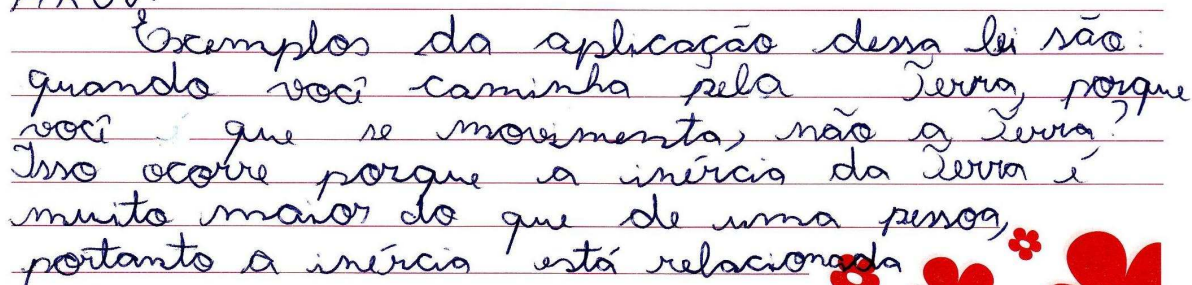 Exemplos da aplicação dessa lei são:
quando você caminha pela Terra, porque
você é que se movimenta, não a Terra?
Isso ocorre porque a inércia da Terra é
muito maior do que de uma pessoa,
portanto a inércia está relacionada